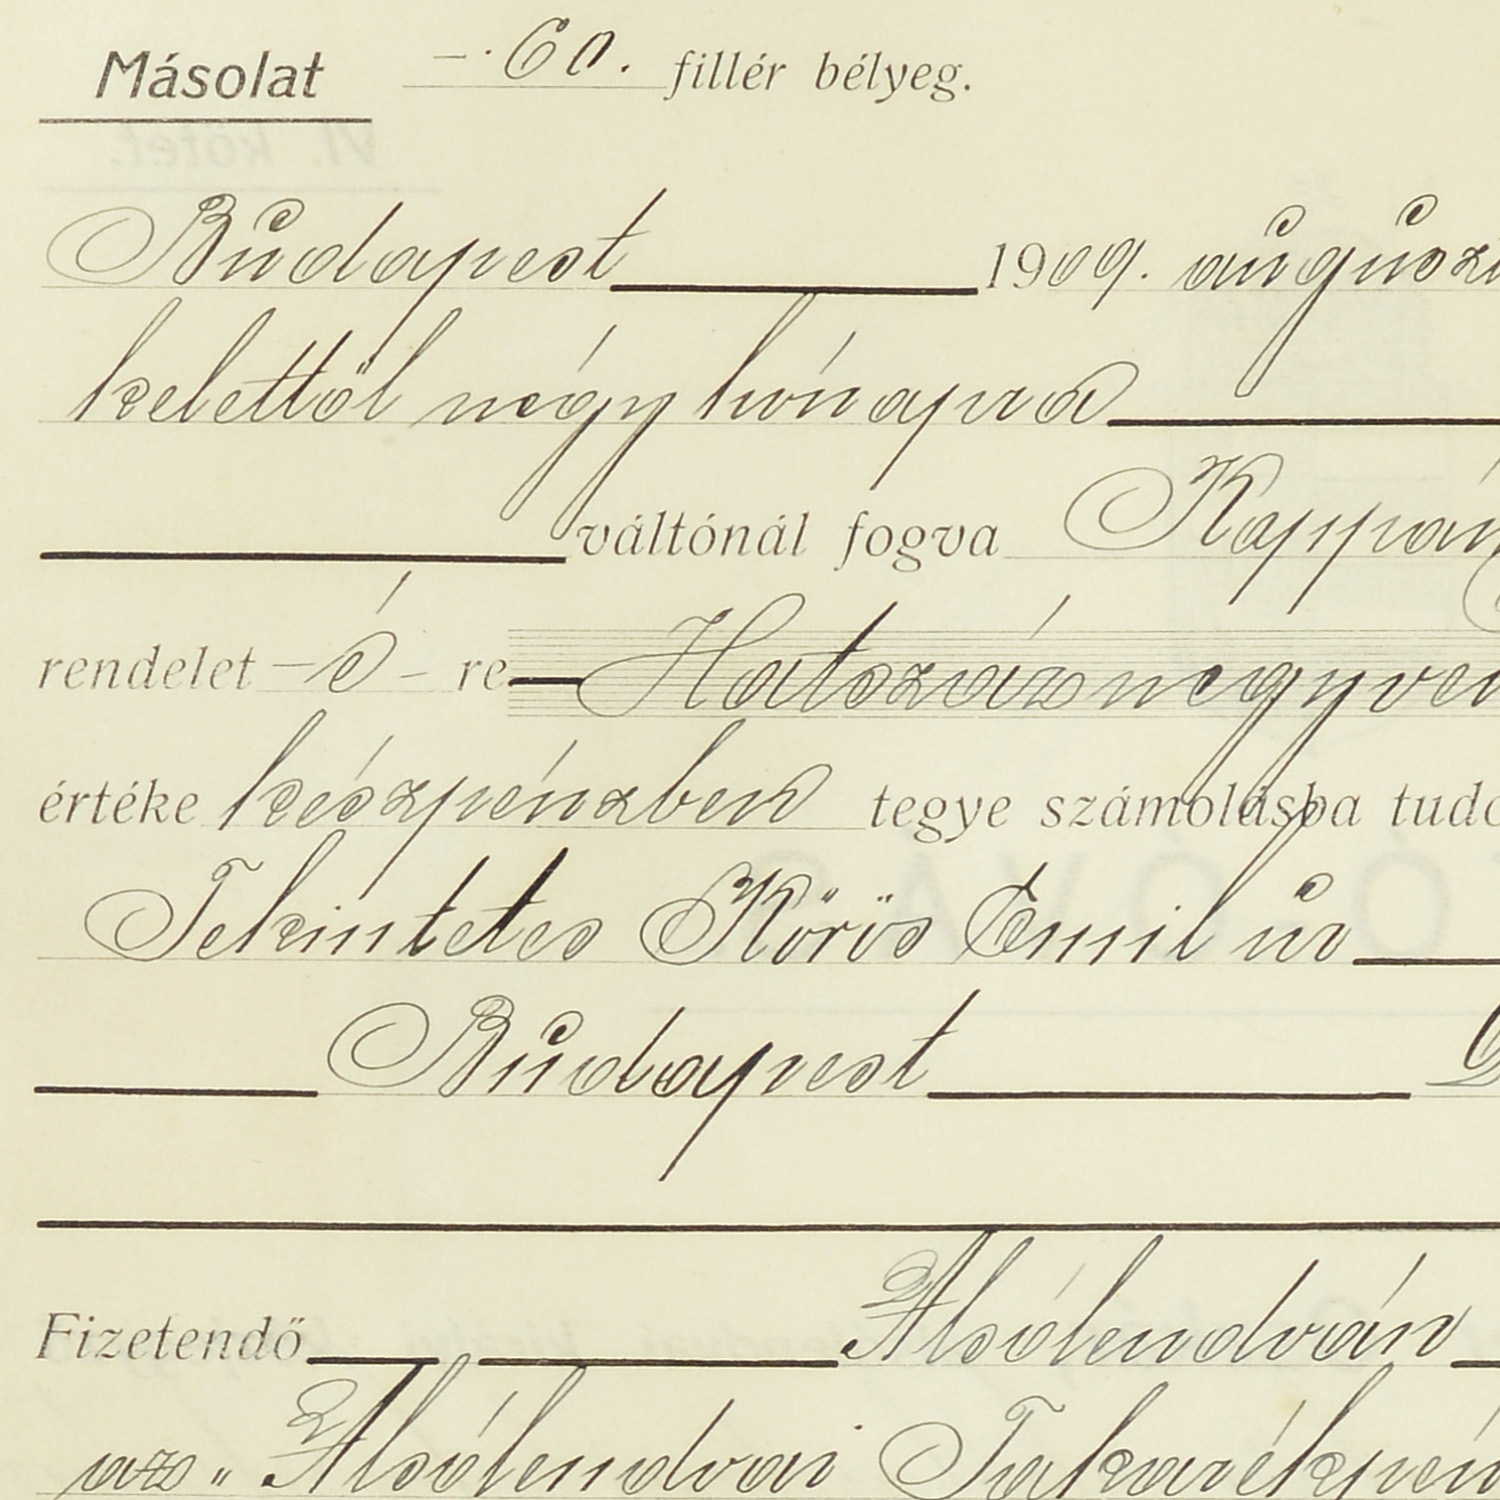 Másolat –·60. fillér bélyeg.
Budapest 1909. auguszt
kelettöl négy hónapra
váltónál fogva Kappán
rendelet – é – re Hatszáznegyven
értéke készpénzben tegye számolásba tudó
Tekintetes Körös Emil úr
Budapest
Fizetendő Alsólendván
az „Alsólendvai Takarékpén